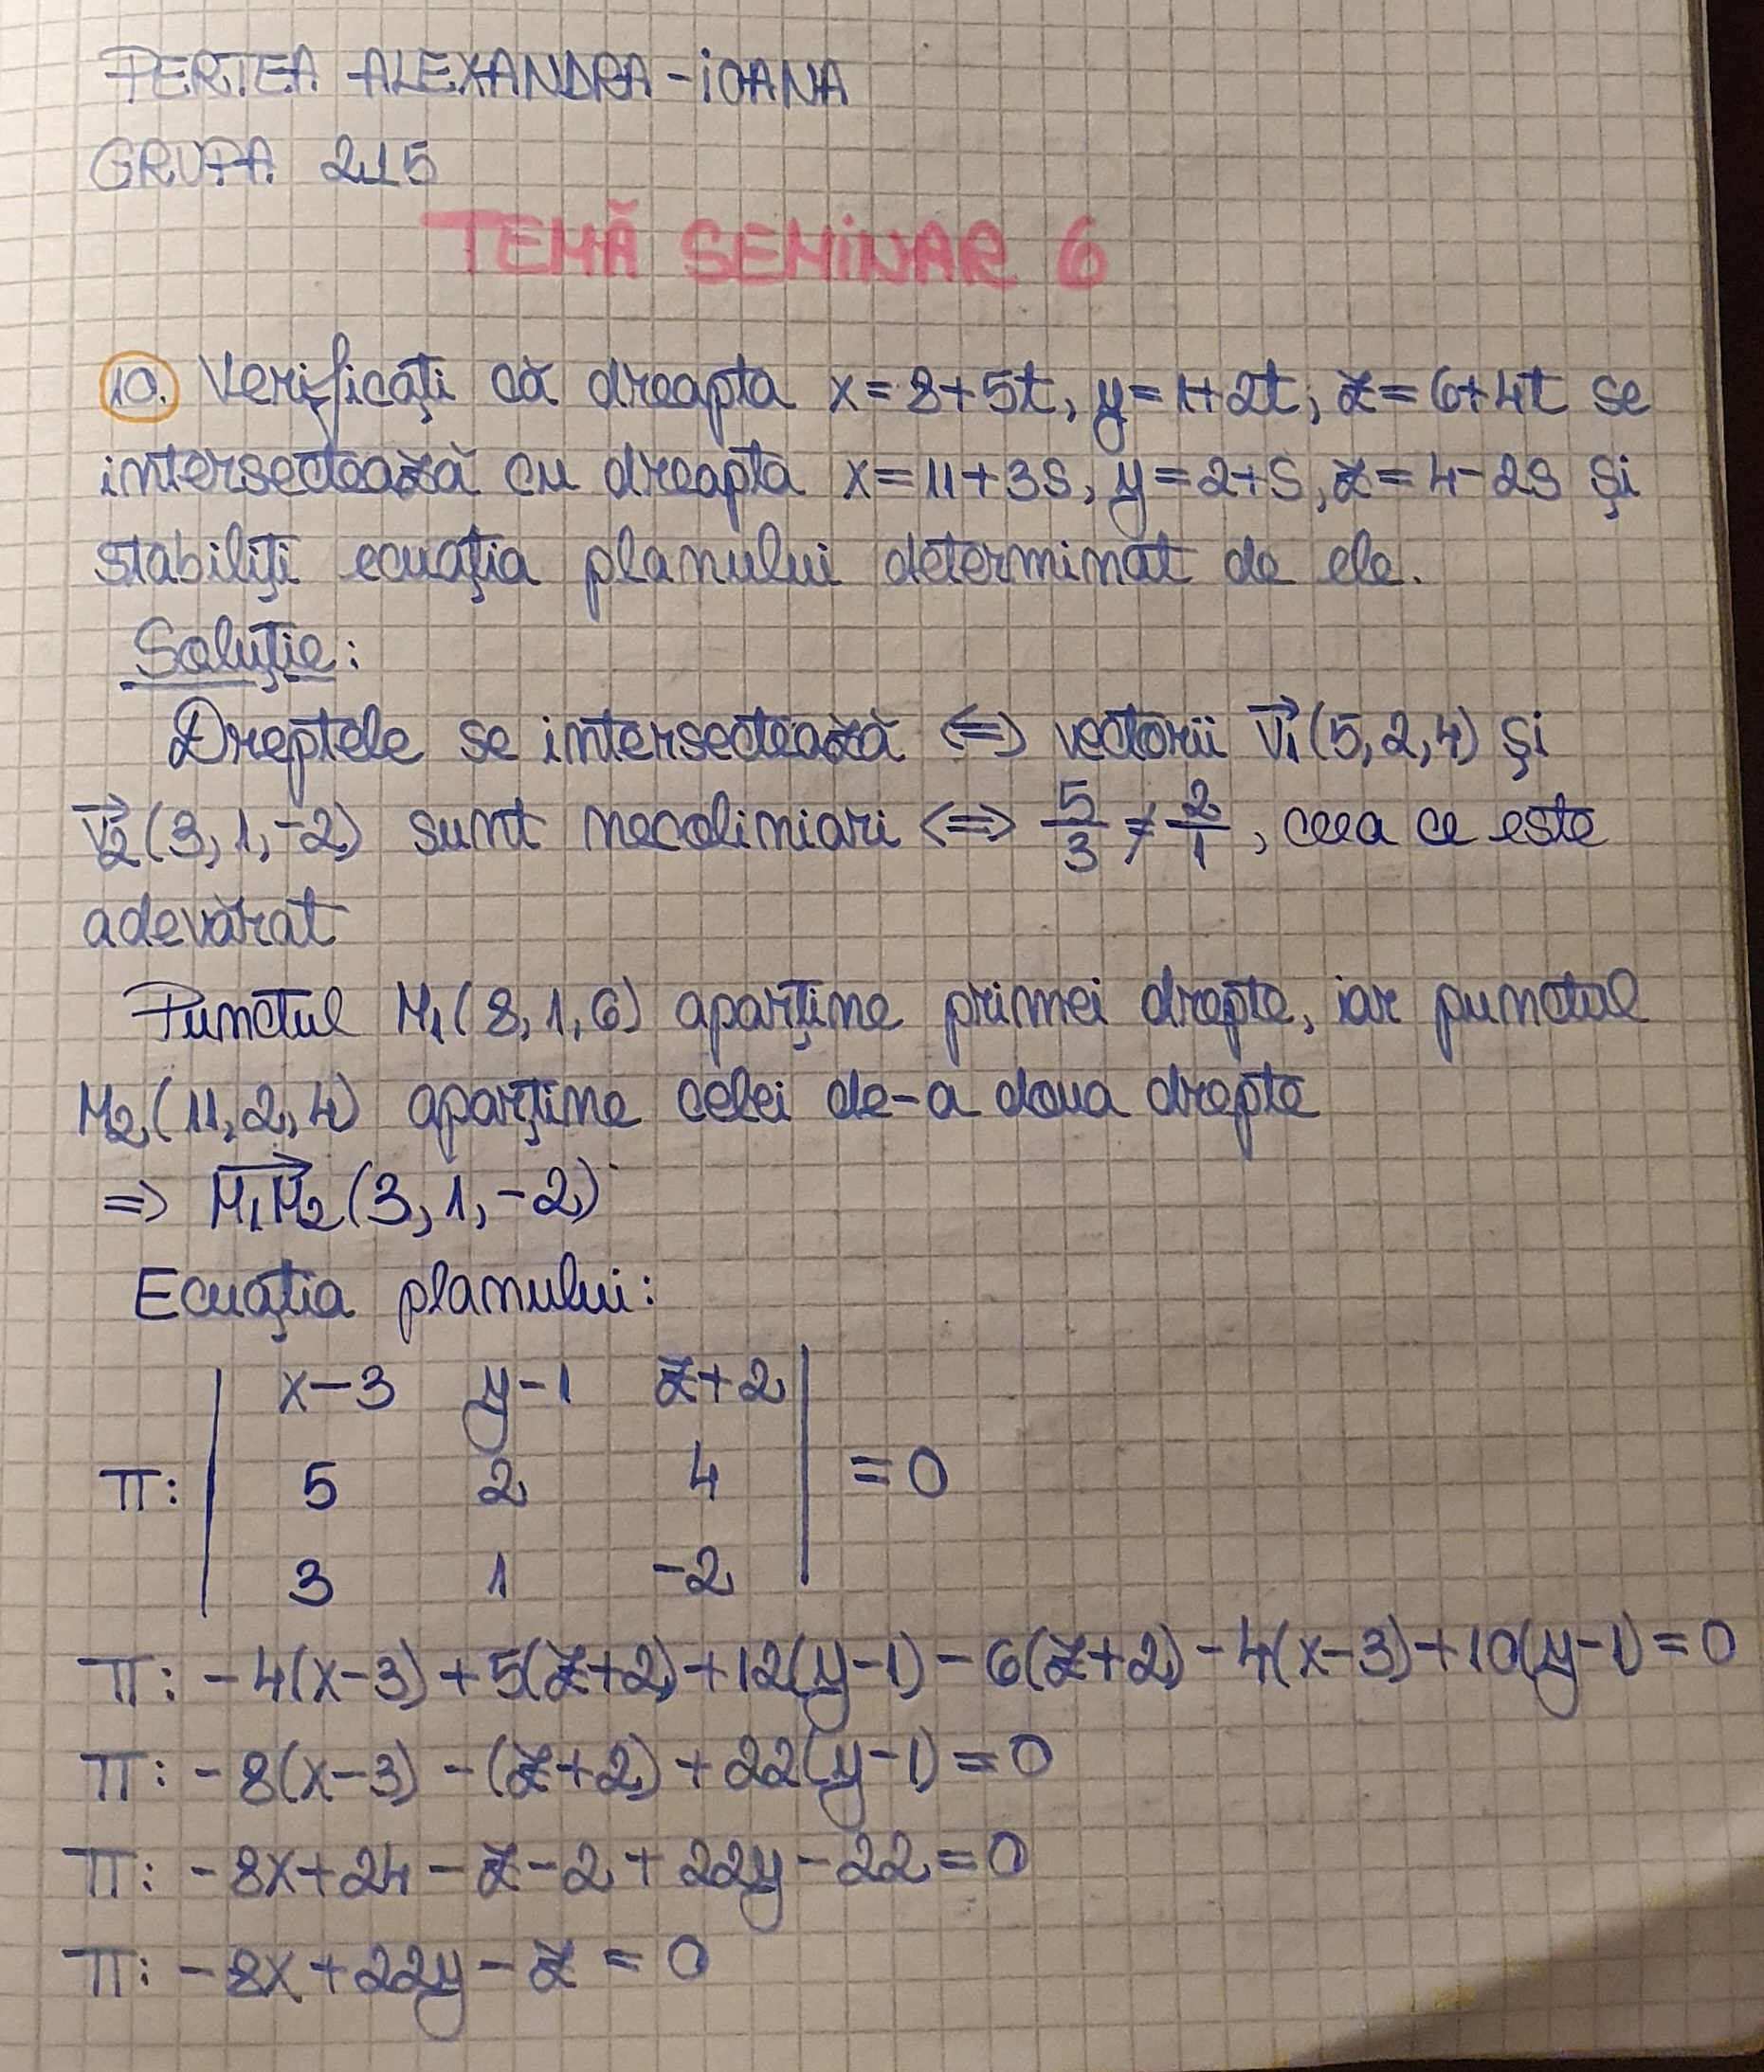 PERTEA ALEXANDRA-IOANA
GRUPA 215
TEMĂ SEMINAR 6
10. Verificați că dreapta x=8+5t, y=1+2t, z=6+4t se
intersectează cu dreapta x=11+3s, y=2+s, z=4-2s și
stabiliți ecuația planului determinat de ele.
Soluție:
Dreptele se intersectează <=> vectorii v₁⃗(5,2,4) și
v₂⃗(3,1,-2) sunt necoliniari <=> 5/3 ≠ 2/1, ceea ce este
adevărat
Punctul M₁(8,1,6) aparține primei drepte, iar punctul
M₂(11,2,4) aparține celei de-a doua drepte
=> M₁M₂⃗(3,1,-2)
Ecuația planului:
| x-3 y-1 z+2 |
π: | 5 2 4 | =0
| 3 1 -2 |
π: -4(x-3)+5(z+2)+12(y-1)-6(z+2)-4(x-3)+10(y-1)=0
π: -8(x-3)-(z+2)+22(y-1)=0
π: -8x+24-z-2+22y-22=0
π: -8x+22y-z=0